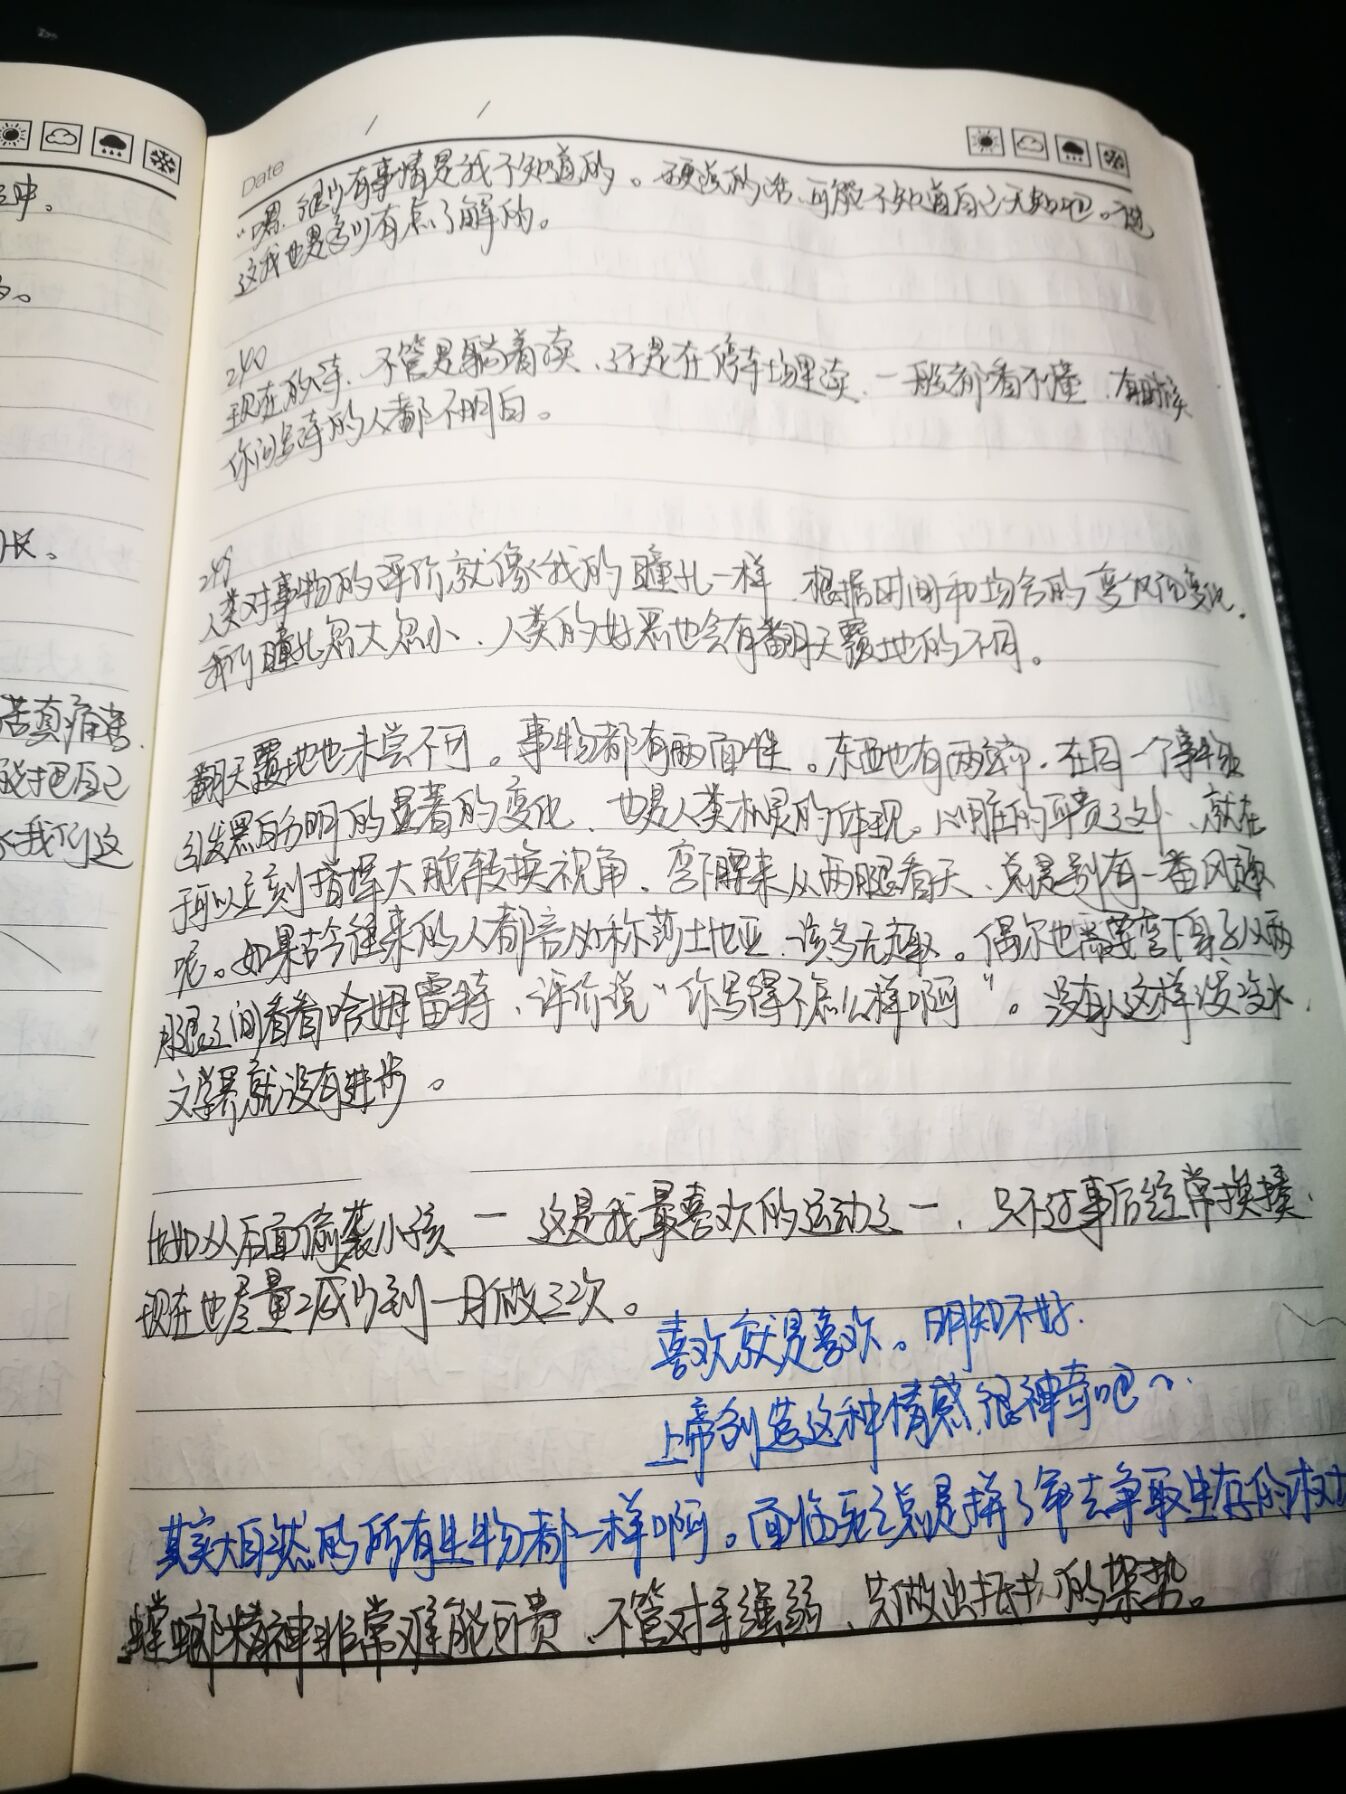 神。
苦真痛
能把自己
我们这
Date
“嗯，很少有事情是我不知道的。硬说的话，可能不知道自己无知吧。不过
这我也是多少有点了解的。
240
现在的诗，不管是躺着读，还是在停车场里读，一般都看不懂，有时候
你问写诗的人都不明白。
人类对事物的评价就像我的瞳孔一样，根据时间和场合的变化而变化。
我们瞳孔忽大忽小，人类的好恶也会有翻天覆地的不同。
翻天覆地也未尝不可。事物都有两面性。东西也有两端，在同一个事物
引发黑白分明的显著的变化，也是人类机灵的体现。心脏的可贵之处，就在
于可以立刻指挥大脑转换视角，弯下腰来从两腿看天，总是别有一番风趣
呢。如果古今往来的人都交口称莎士比亚，该多无趣。偶尔也需要弯下身子从两
腿之间看看哈姆雷特，评价说“你写得不怎么样啊”。没有人这样泼冷水，
文学界就没有进步。
比如从后面偷袭小孩 — 这是我最喜欢的运动之一，只不过事后经常挨揍，
现在也尽量减少到一月做三次。
喜欢就是喜欢。明知不好，
上帝创造这种情感很神奇吧～
其实大自然的所有生物都一样啊。面临死亡总是拼了命去争取生存的权
螳螂精神非常难能可贵，不管对手强弱，先做出抵抗的架势。